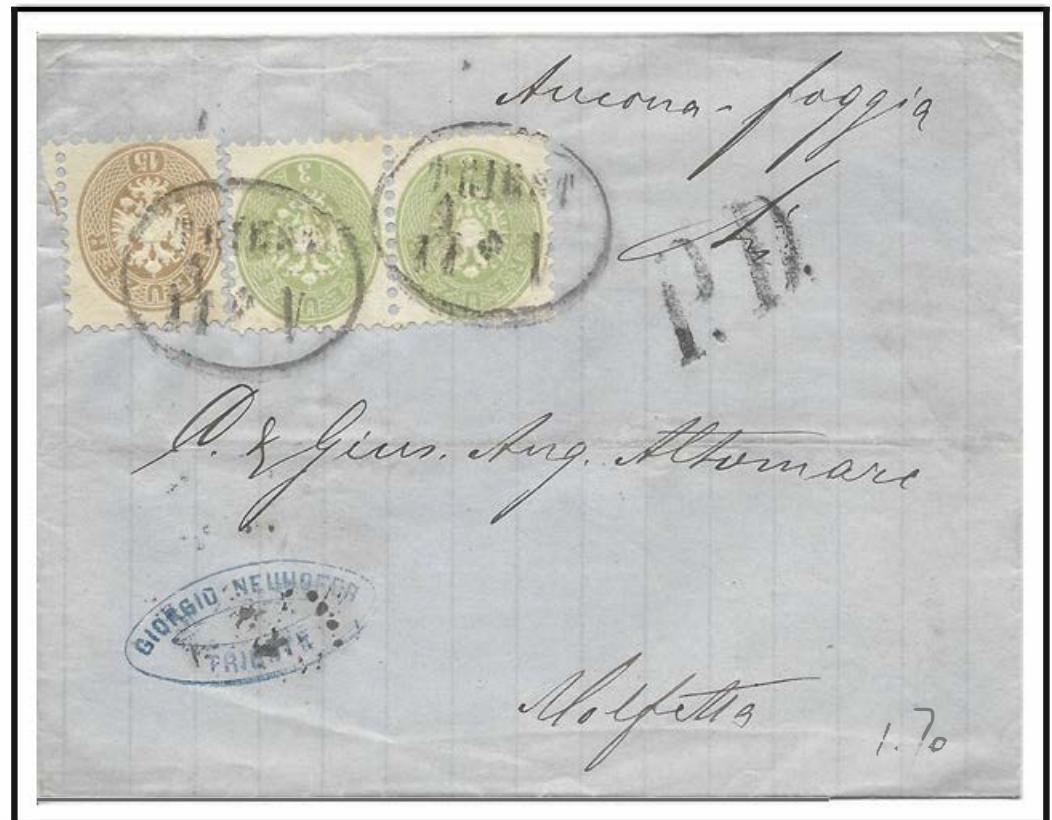 Ancona - foggia
15
3
TRIEST
11
TRIEST
11
P.D.
D. & Gius. Ang. Altomare
GIORGIO NEUHOFER
TRIESTE
Molfetta
1.70